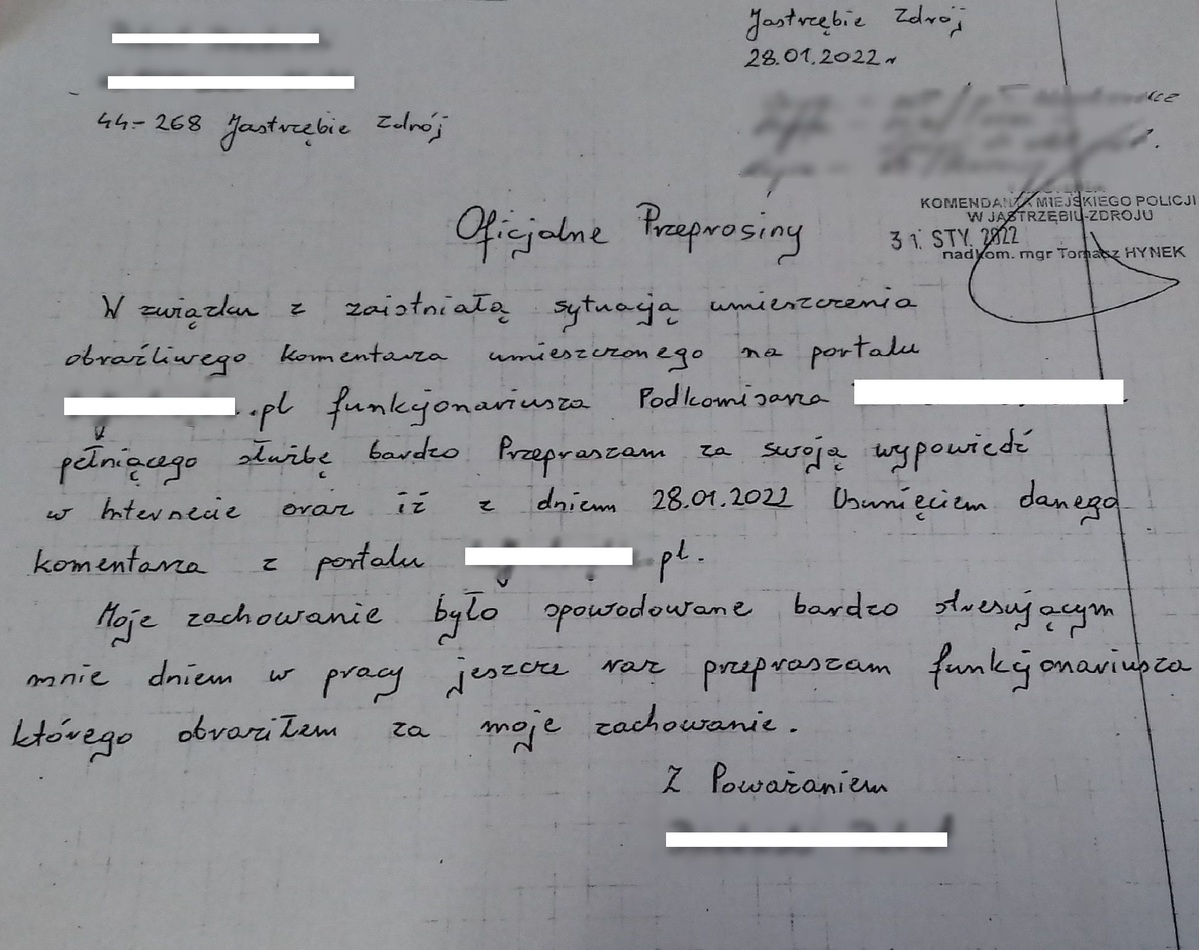 Jastrzębie Zdrój
28.01.2022 r
44-268 Jastrzębie Zdrój
KOMENDANTA MIEJSKIEGO POLICJI
W JASTRZĘBIU-ZDROJU
31. STY. 2022
nadkom. mgr Tomasz HYNEK
Oficjalne Przeprosiny
W związku z zaistniałą sytuacją umieszczenia
obraźliwego komentarza umieszczonego na portalu
.pl funkcjonariusza Podkomisarza
pełniącego służbę bardzo Przepraszam za swoją wypowiedź
w Internecie oraz iż z dniem 28.01.2022 Usunięciem danego
komentarza z portalu .pl.
Moje zachowanie było spowodowane bardzo stresującym
mnie dniem w pracy jeszcze raz przepraszam funkcjonariusza
którego obraziłem za moje zachowanie.
Z Poważaniem